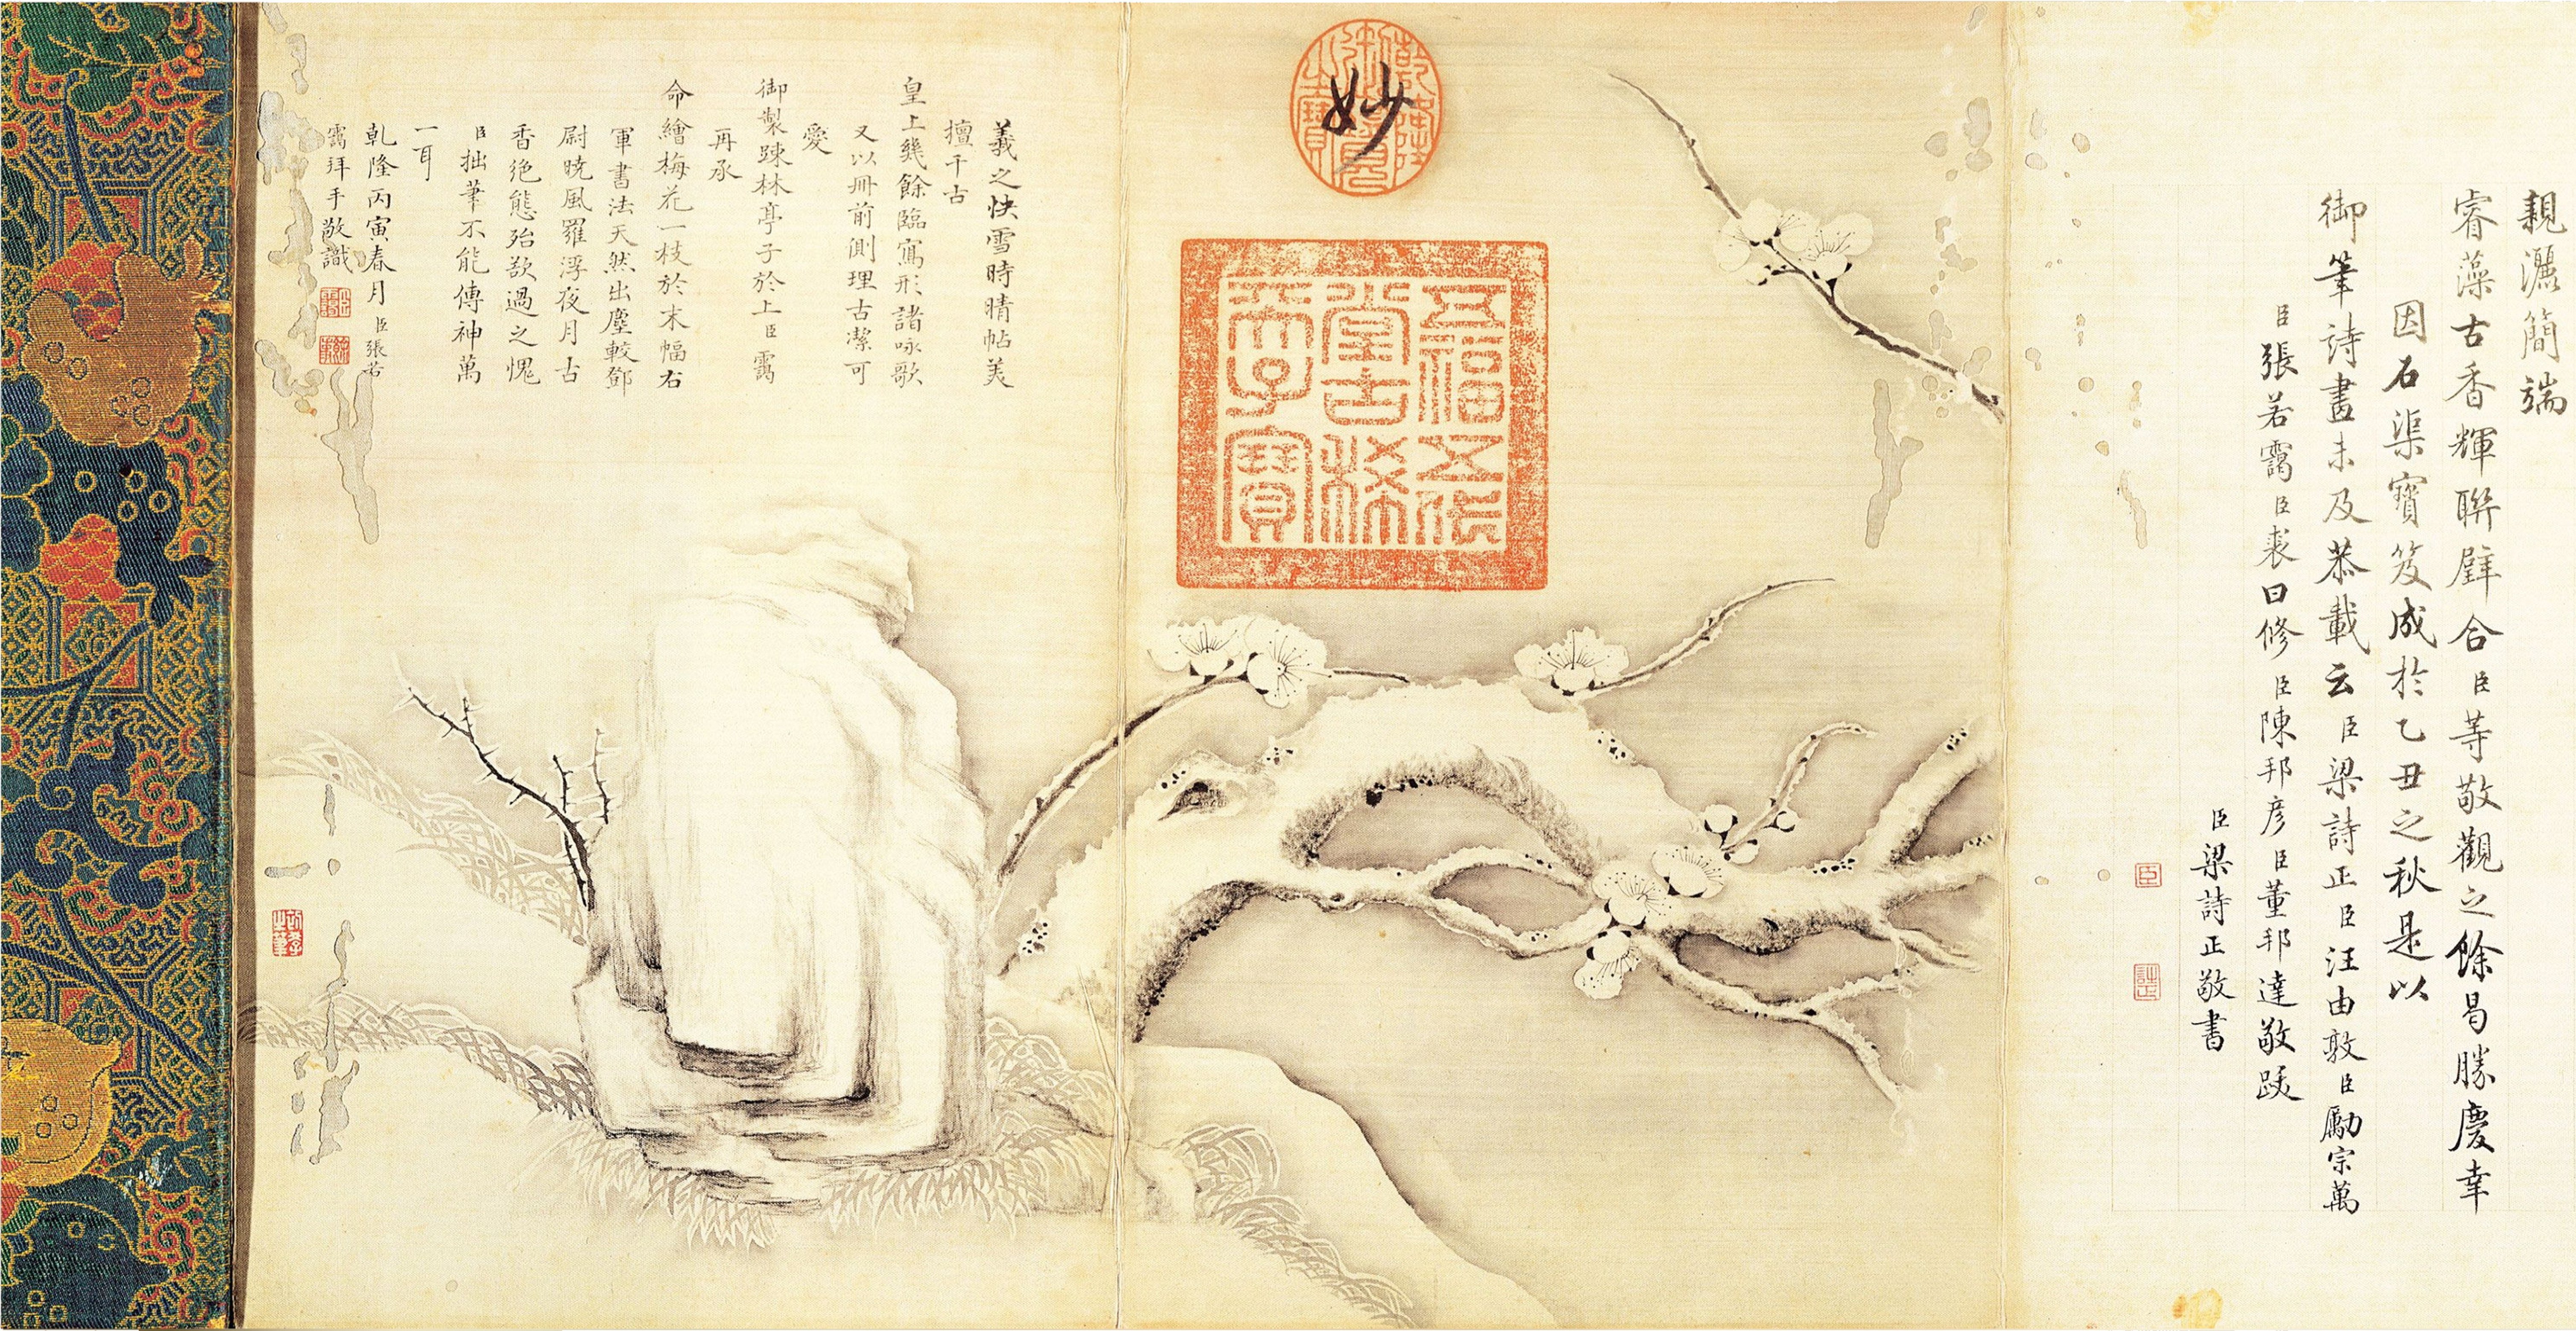 親灑簡端
睿藻古香輝聯璧合臣等敬觀之餘曷勝慶幸
因石渠寶笈成於乙丑之秋是以
御筆詩畫未及恭載云臣梁詩正臣汪由敦臣勵宗萬
臣張若靄臣裘曰修臣陳邦彥臣董邦達敬跋
臣梁詩正敬書
臣
詩正
妙
乾隆御覽之寶
五福五代
堂古稀
天子寶
羲之快雪時晴帖美
擅千古
皇上幾餘臨寫形諸吟歌
又以冊前側理古潔可
愛
御製踈林亭子於上臣靄
再承
命繪梅花一枝於末幅右
軍書法天然出塵較鄧
尉曉風羅浮夜月古
香絕態殆欲過之愧
臣拙筆不能傳神萬
一耳
乾隆丙寅春月臣張若
靄拜手敬識